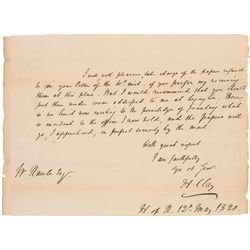 I will with pleasure take charge of the papers referred
to in your letter of the 10th inst. if you prefer my receiving
them at this place. But I would recommend that you should
put them under cover addressed to me at Lexington. There
is no limit now existing to the privilege of franking which
is incident to the office I now hold, and the papers will
go, I apprehend, in perfect security by the mail.
With great respect
I am faithfully
Yr. ob. Serv.
H. Clay
Wm Rawle Esq.
H of R. 12th May 1820.